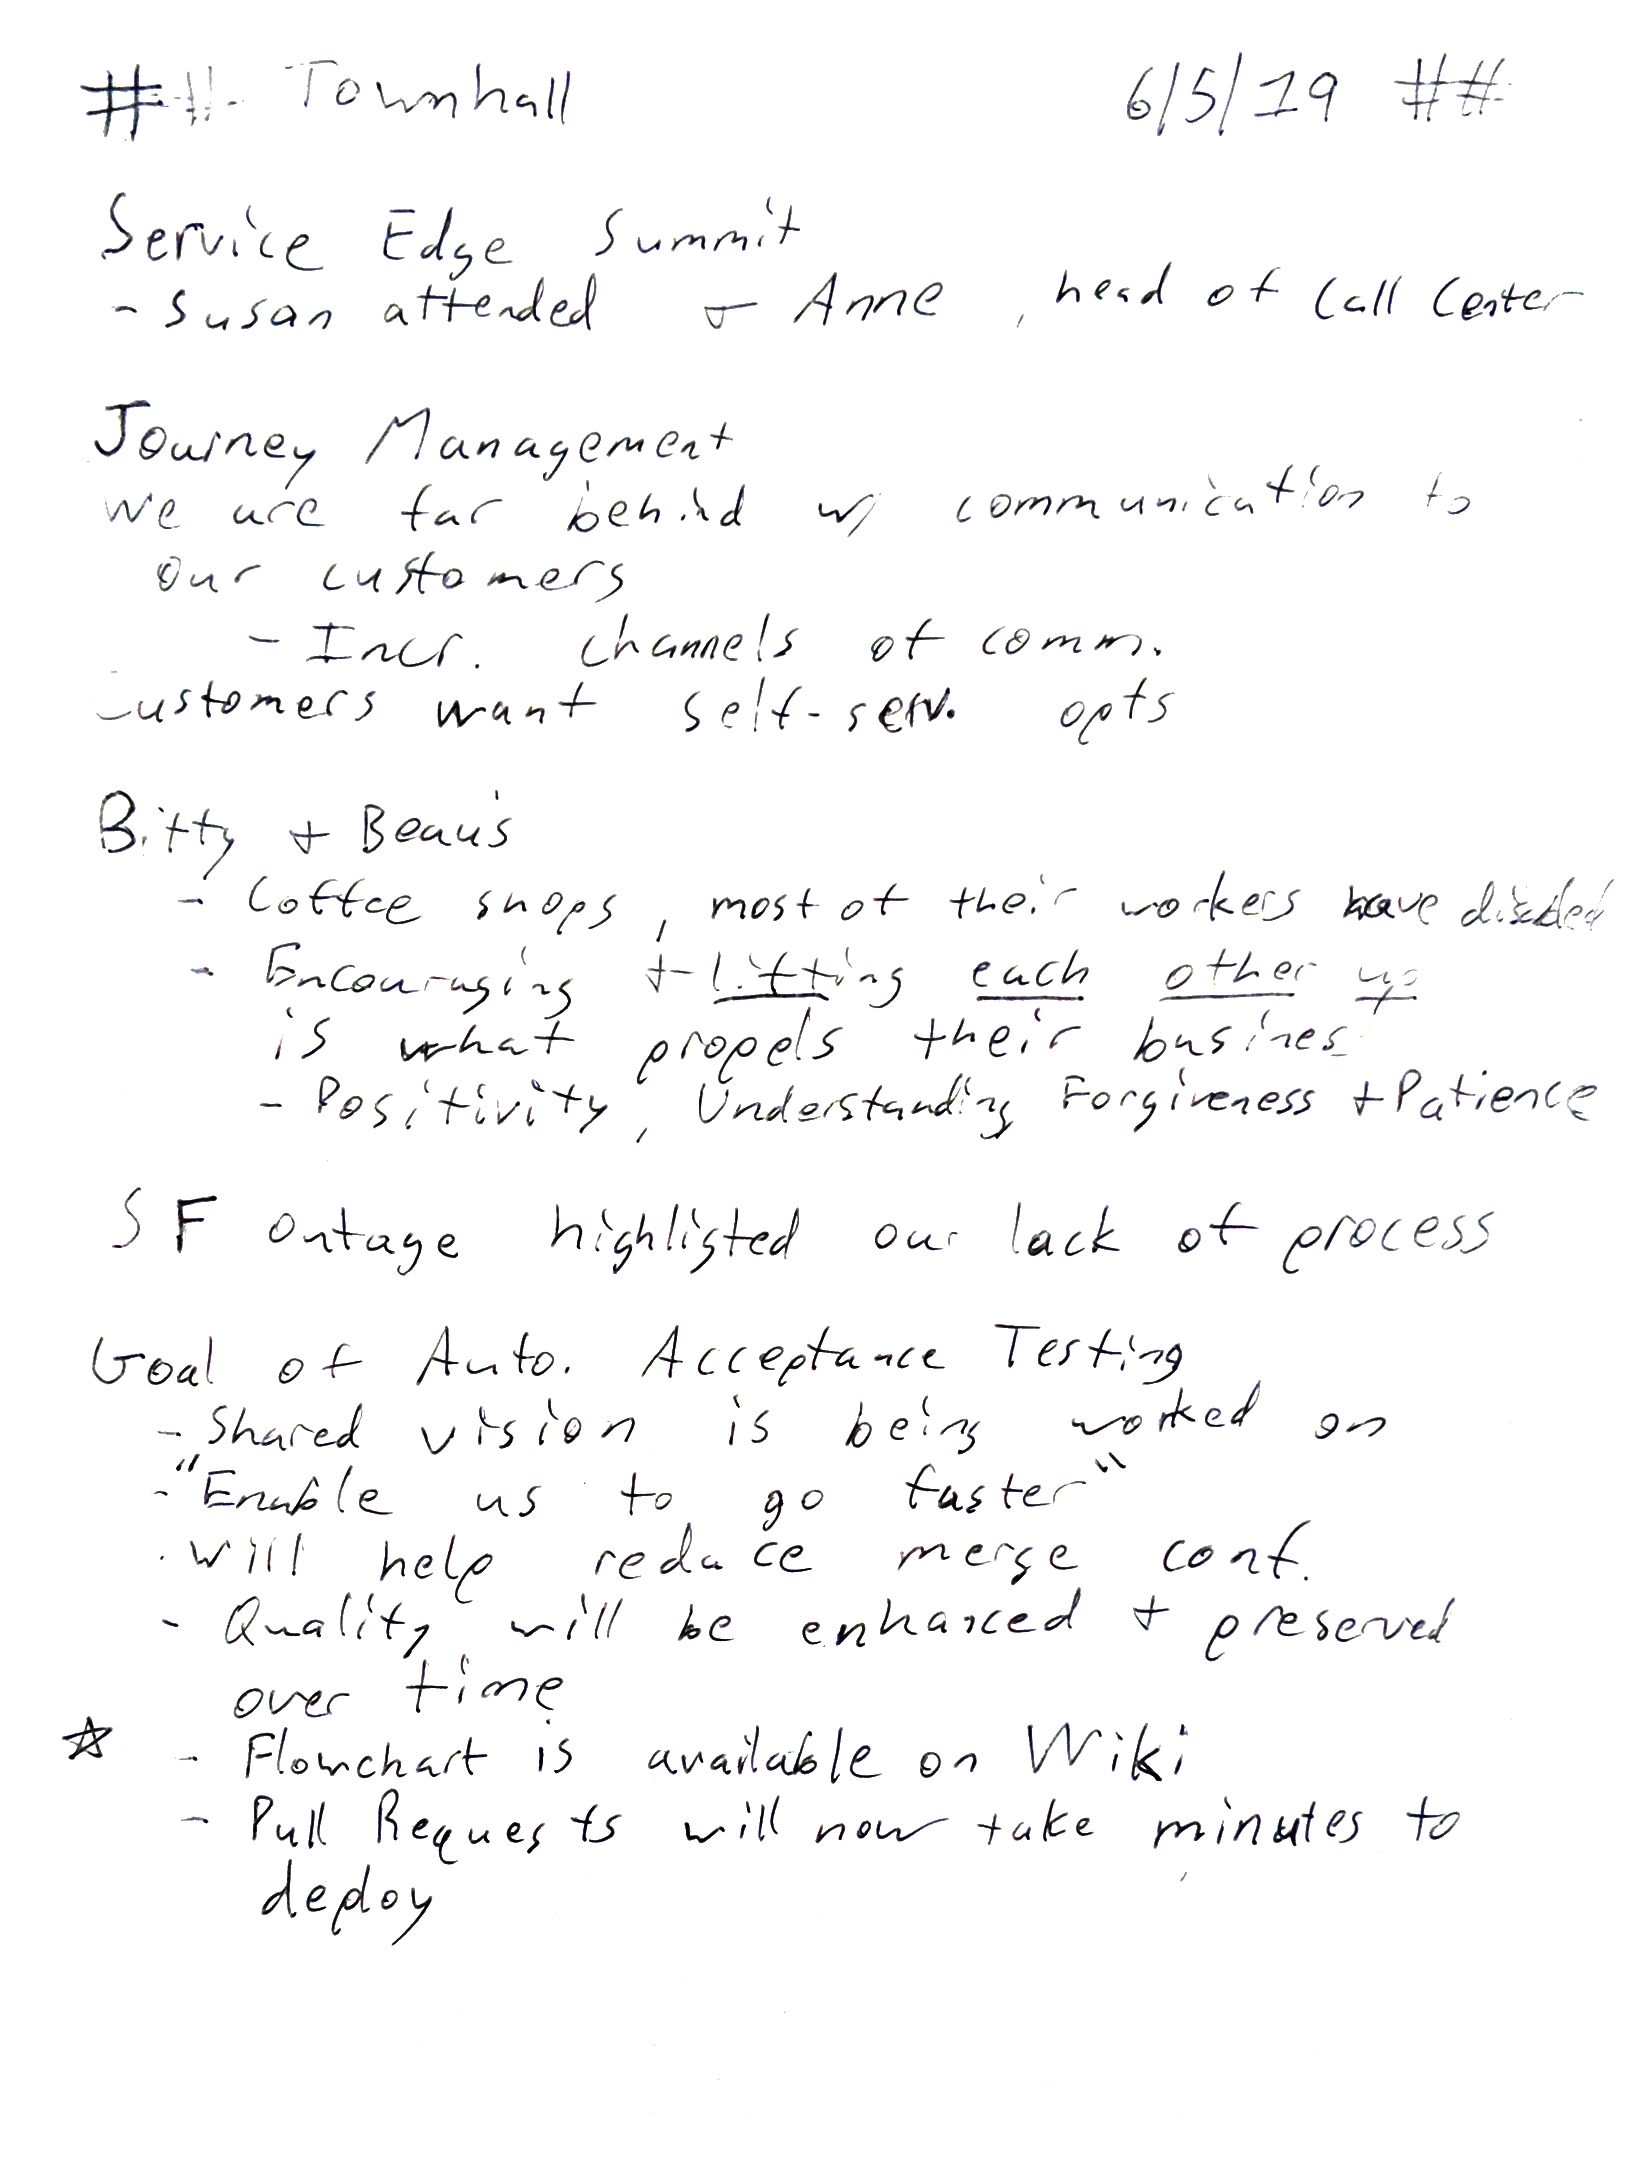 ## Townhall 6/5/19 ##
Service Edge Summit
- Susan attended + Anne, head of Call Center
Journey Management
We are far behind w/ communication to
our customers
- Incr. channels of comm.
Customers want self-serv. opts
Bitty + Beau's
- Coffee shops, most of their workers have disabled
- Encouraging + lifting each other up
is what propels their busines
- Positivity, Understanding Forgiveness + Patience
SF outage highligted our lack of process
Goal of Auto. Acceptance Testing
- Shared vision is being worked on
- "Enable us to go faster"
- Will help reduce merge conf.
- Quality will be enhanced + preserved
over time
☆ - Flowchart is available on Wiki
- Pull Requests will now take minutes to
deploy